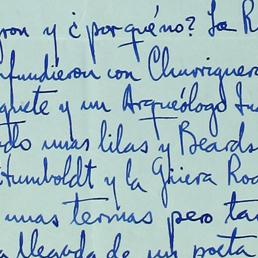 yron y ¿porqué no? La R
nfundieron con Churriguera
guete y un Arqueólogo In
do unas lilas y Beards
Humboldt y la Güera Rod
unas termas pero ta
a llegada de un poeta